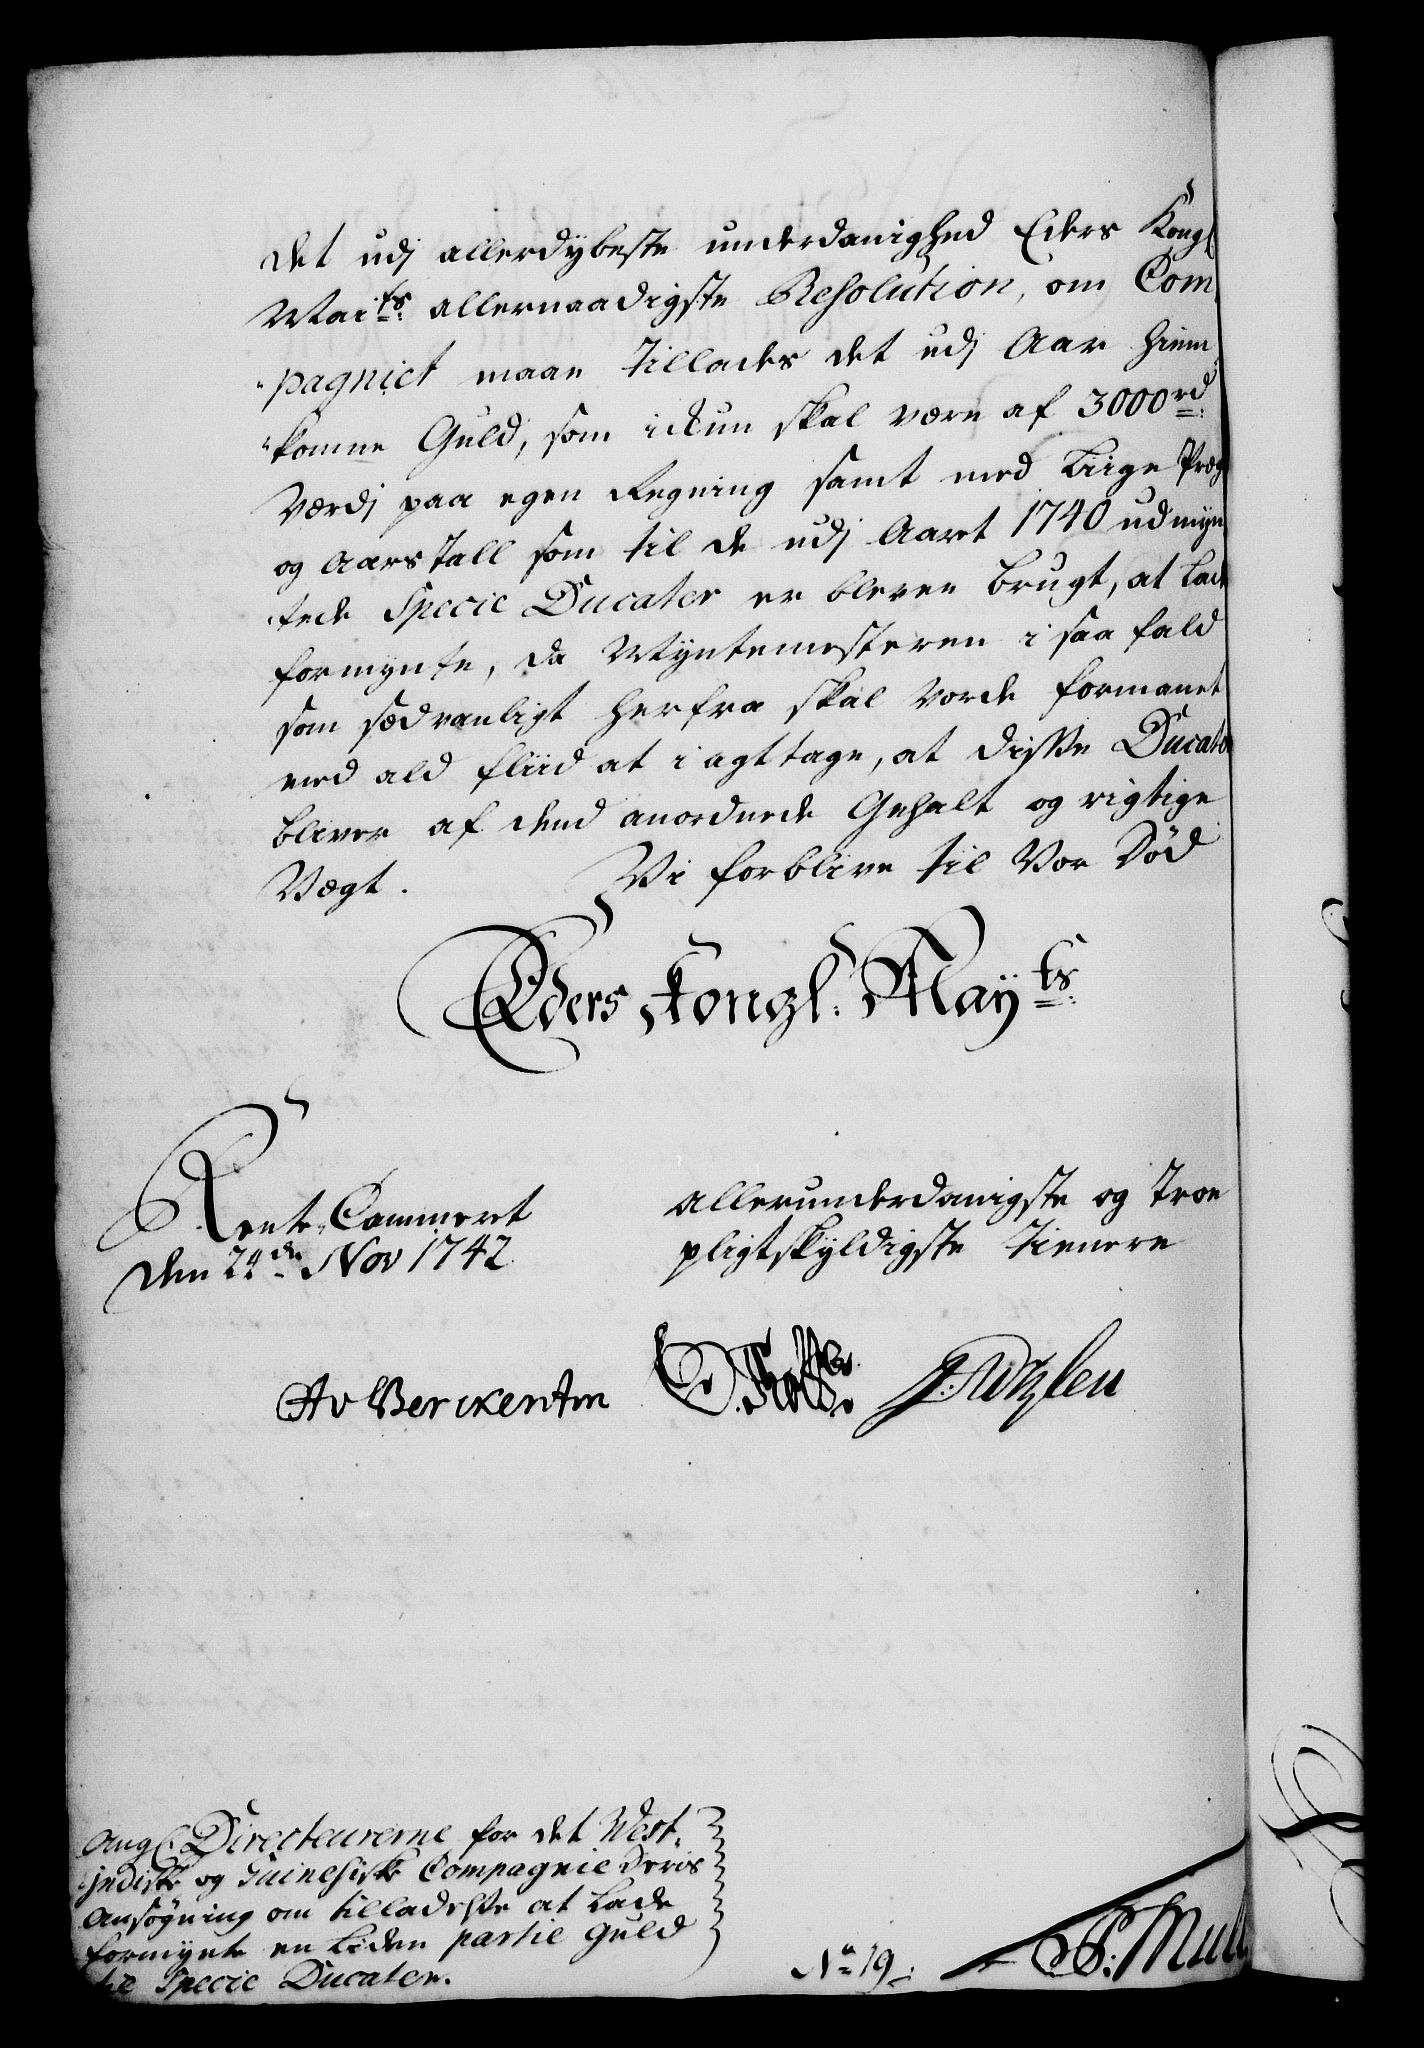 det udj allerdybeste underdanighed Eders Kongl
Maits: allernaadigste Resolution, om Com
pagniet maae tillades det udj Aar hiem
komne Guld, som ickun skal være af 3000 rd:
Værdj paa egen Regning samt med Liige Præg
og Aars Tall som til de udj Aaret 1740 udmyn
tede Specie Ducater er bleven brugt, at lade
formynte, da Myntemesteren i saa fald
som sædvanligt herfra skal vorde formanet
med ald fliid at i agt tage, at disse Ducater
bliver af dend anordnede Gehalt og rigtige
Vægt. Vi forblive til Vor Död
Eders Kongl. Mayts:
Rente-Cammeret
den 24de Nov 1742.
allerunderdanigste og troe
pligtskyldigste tienere
Av Berckentin
Ang. Directeurerne for det West-
jndiske og Guinesiske Compagnie deris
Ansøgning om tilladelse at lade
formynte en liden partie Guld
til Specie Ducater.
No 19.